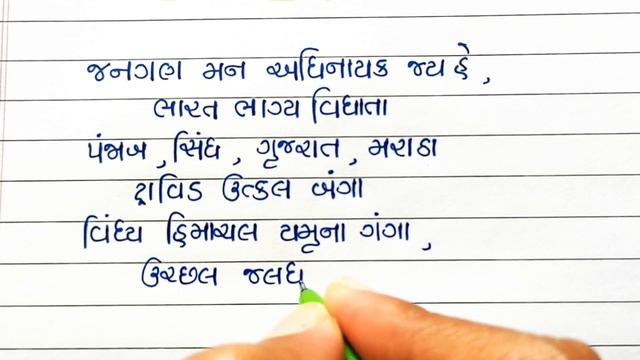 જનગણ મન અધિનાયક જય હે,
ભારત ભાગ્ય વિધાતા
પંજાબ, સિંધ, ગુજરાત, મરાઠા
દ્રાવિડ ઉત્કલ બંગા
વિંધ્ય હિમાચલ યમુના ગંગા,
ઉચ્છલ જલધ